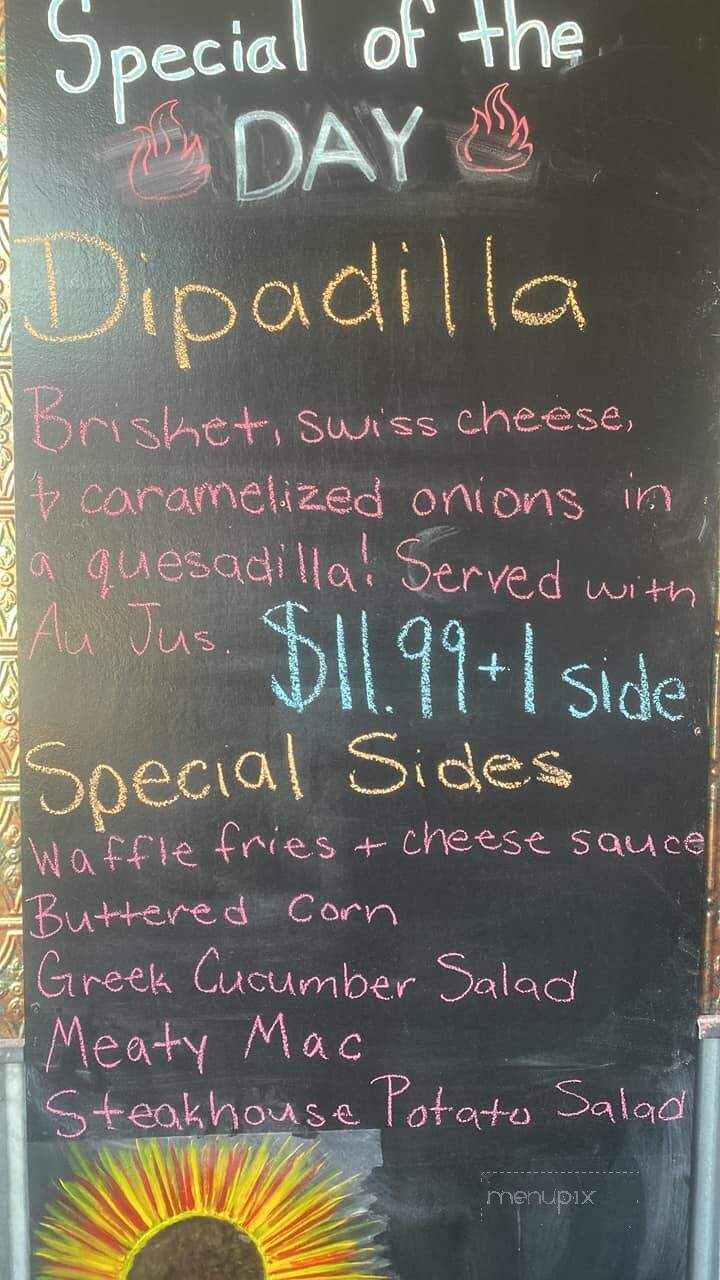 Special of the
DAY
Dipadilla
Brisket, swiss cheese,
+ caramelized onions in
a quesadilla! Served with
Au Jus. $11.99+1 side
Special Sides
Waffle fries + cheese sauce
Buttered corn
Greek Cucumber Salad
Meaty Mac
Steakhouse Potato Salad
menupix